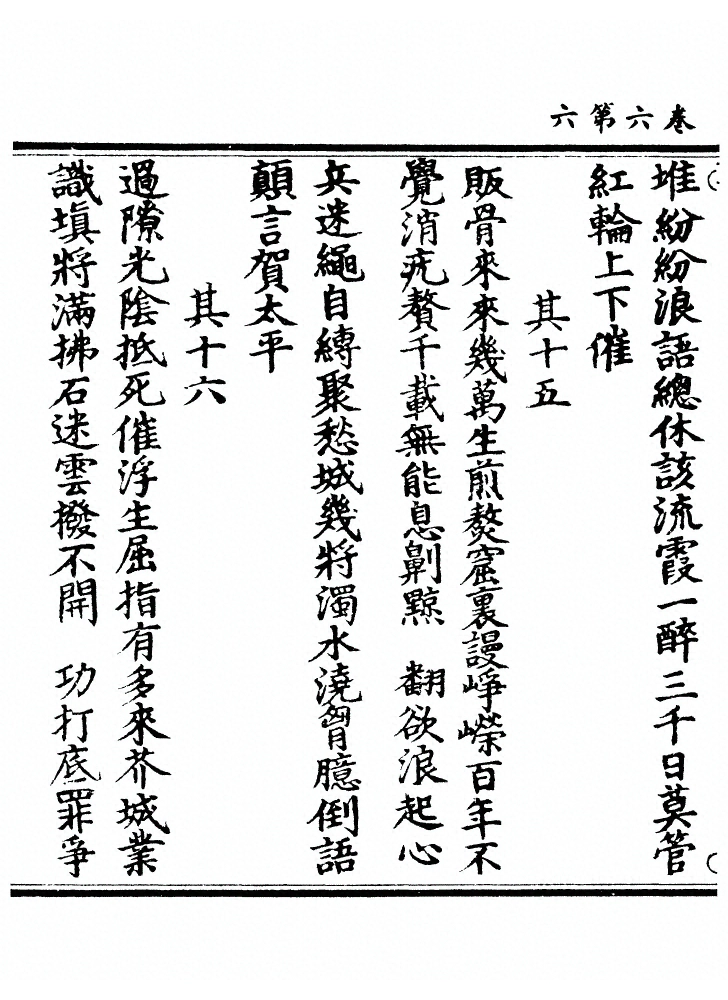 六第六卷
堆紛紛浪語總休該流霞一醉三千日莫管
紅輪上下催
其十五
販骨來來幾萬生煎熬窟裏謾崢嶸百年不
覺消疣贅千載無能息劓黥　翻欲浪起心
兵迷繩自縛聚愁城幾將濁水澆胷臆倒語
顛言賀太平
其十六
過隙光陰抵死催浮生屈指有多來芥城業
識塡將滿拂石迷雲撥不開　功打底罪爭